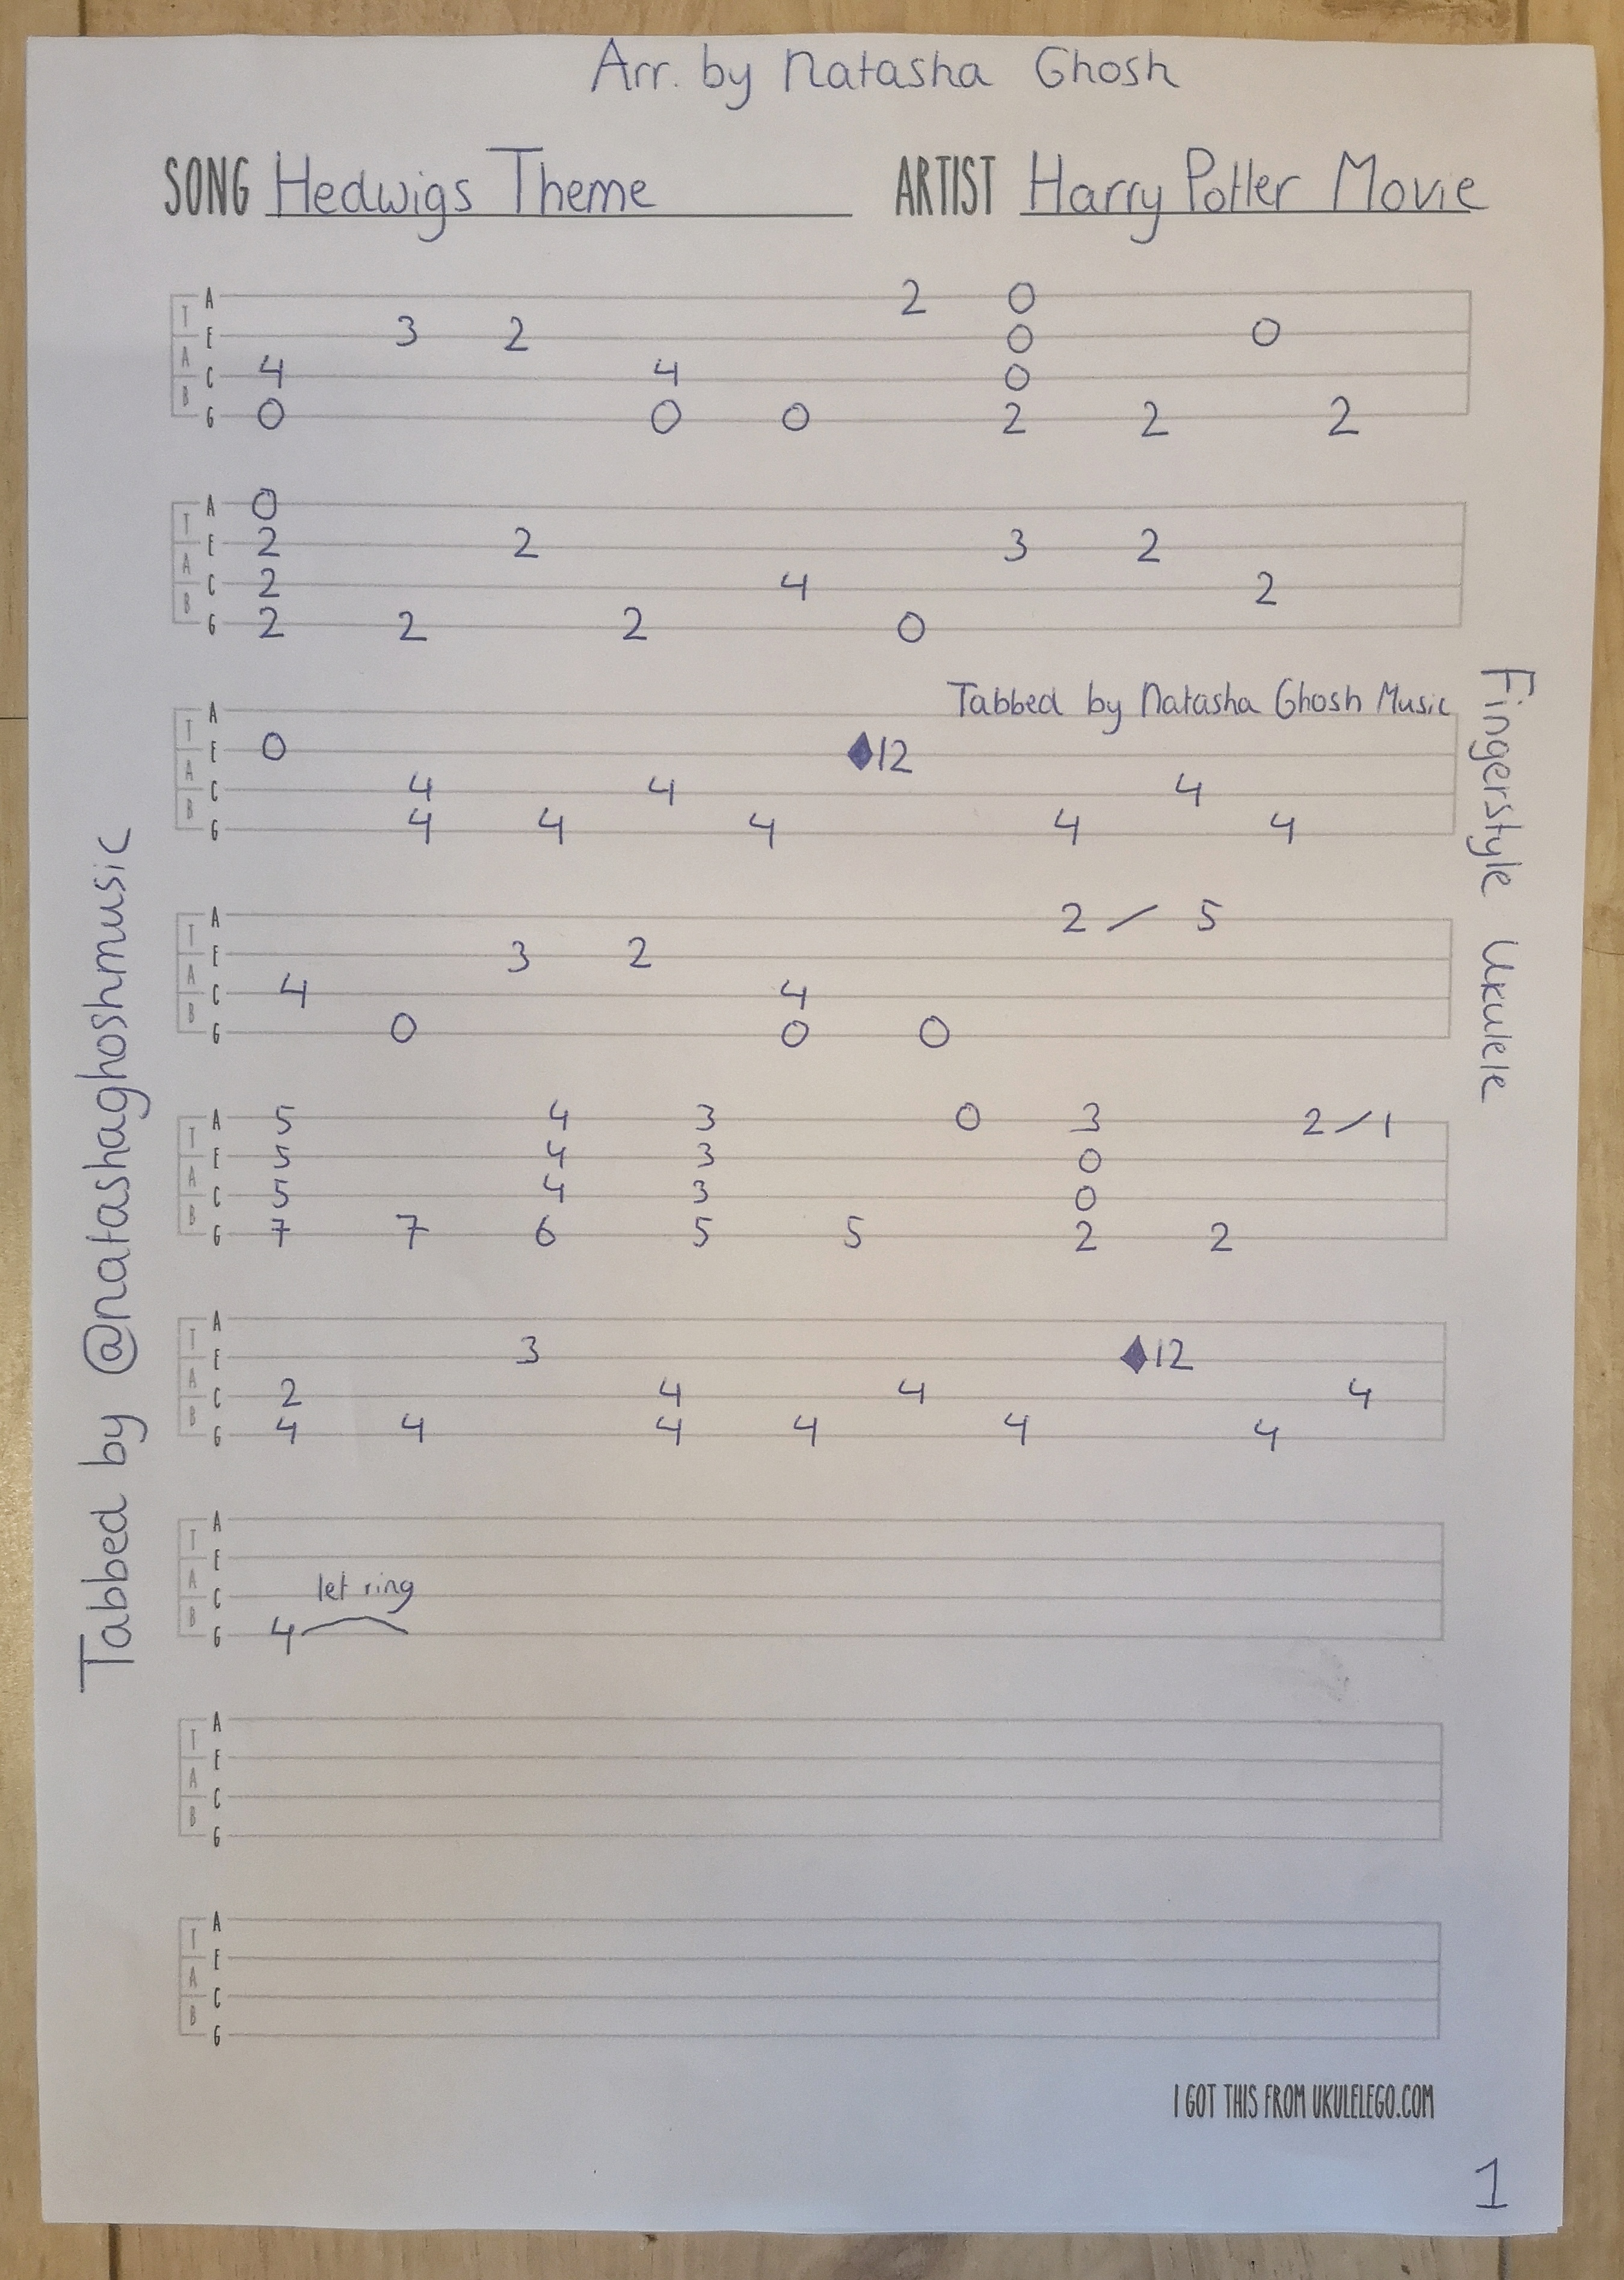 Arr. by Natasha Ghosh
SONG Hedwigs Theme ARTIST Harry Potter Movie
T A B
A 2 0
E 3 2 0 0
C 4 4 0
G 0 0 0 2 2 2
T A B
A 0
E 2 2 3 2
C 2 4 2
G 2 2 2 0
Tabbed by Natasha Ghosh Music
T A B
A
E 0 ♦12
C 4 4 4
G 4 4 4 4 4
T A B
A 2 / 5
E 3 2
C 4 4
G 0 0 0
T A B
A 5 4 3 0 3 2/1
E 5 4 3 0
C 5 4 3 0
G 7 7 6 5 5 2 2
T A B
A
E 3 ♦12
C 2 4 4 4
G 4 4 4 4 4 4
T A B
A
E
let ring
C
G 4
T A B
A
E
C
G
T A B
A
E
C
G
Tabbed by @natashaghoshmusic
Fingerstyle Ukulele
I GOT THIS FROM UKULELEGO.COM
1